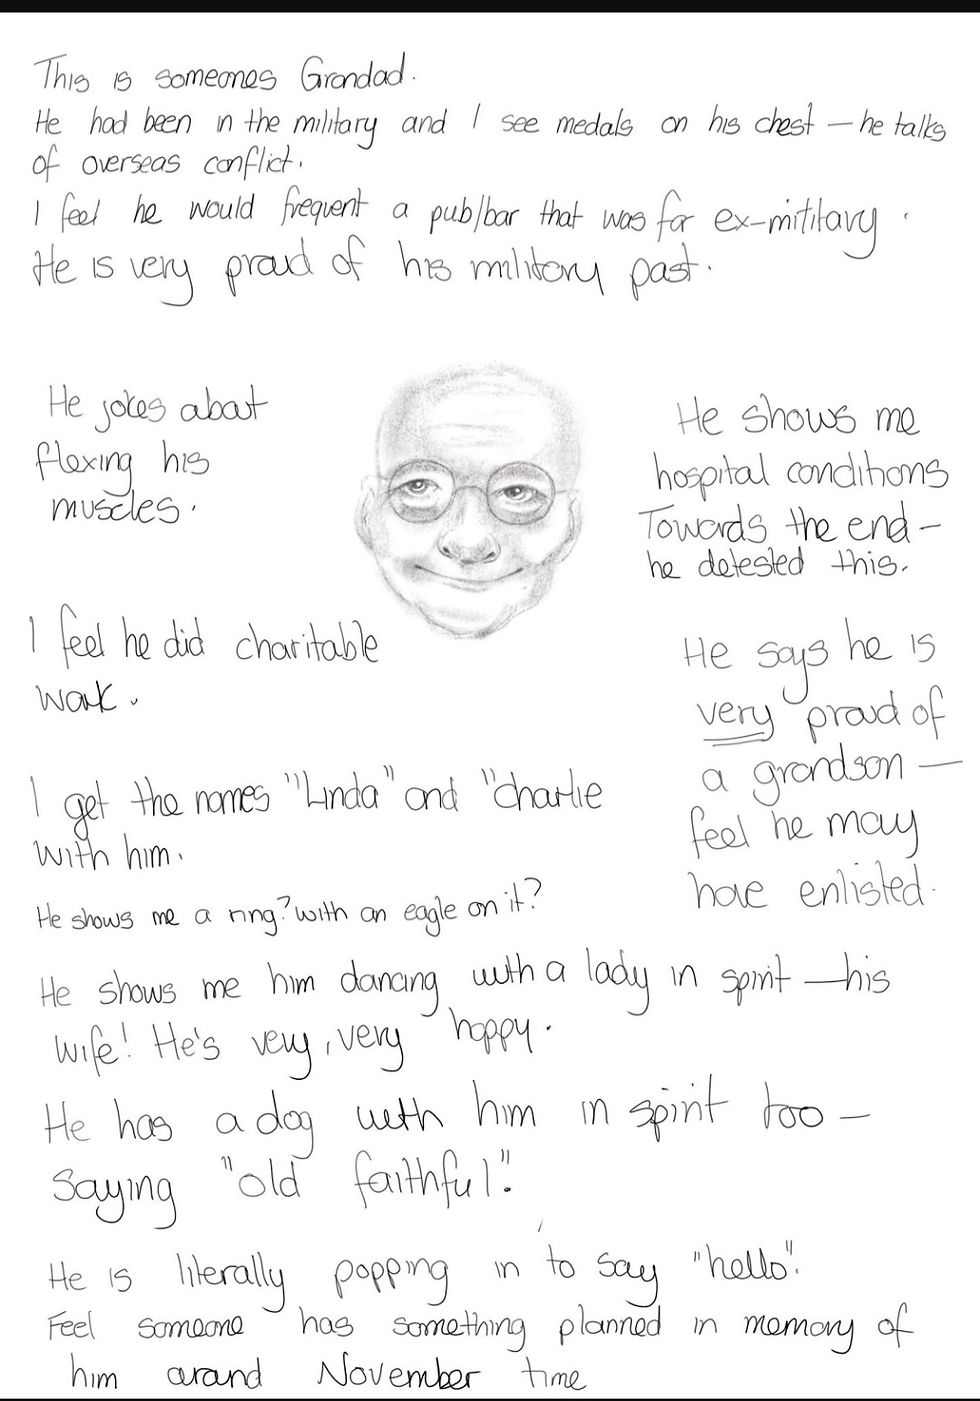 This is someones Grandad.
He had been in the military and I see medals on his chest – he talks
of overseas conflict.
I feel he would frequent a pub/bar that was for ex-mititary.
He is very proud of his military past.
He jokes about
flexing his
muscles.
He shows me
hospital conditions
Towards the end –
he detested this.
I feel he did charitable
work.
He says he is
very proud of
a grandson –
feel he may
have enlisted.
I get the names "Linda" and "Charlie
with him.
He shows me a ring? with an eagle on it?
He shows me him dancing with a lady in spirit – his
wife! He's very, very happy.
He has a dog with him in spirit too –
Saying "old faithful".
He is literally popping in to say "hello".
Feel someone has something planned in memory of
him around November time